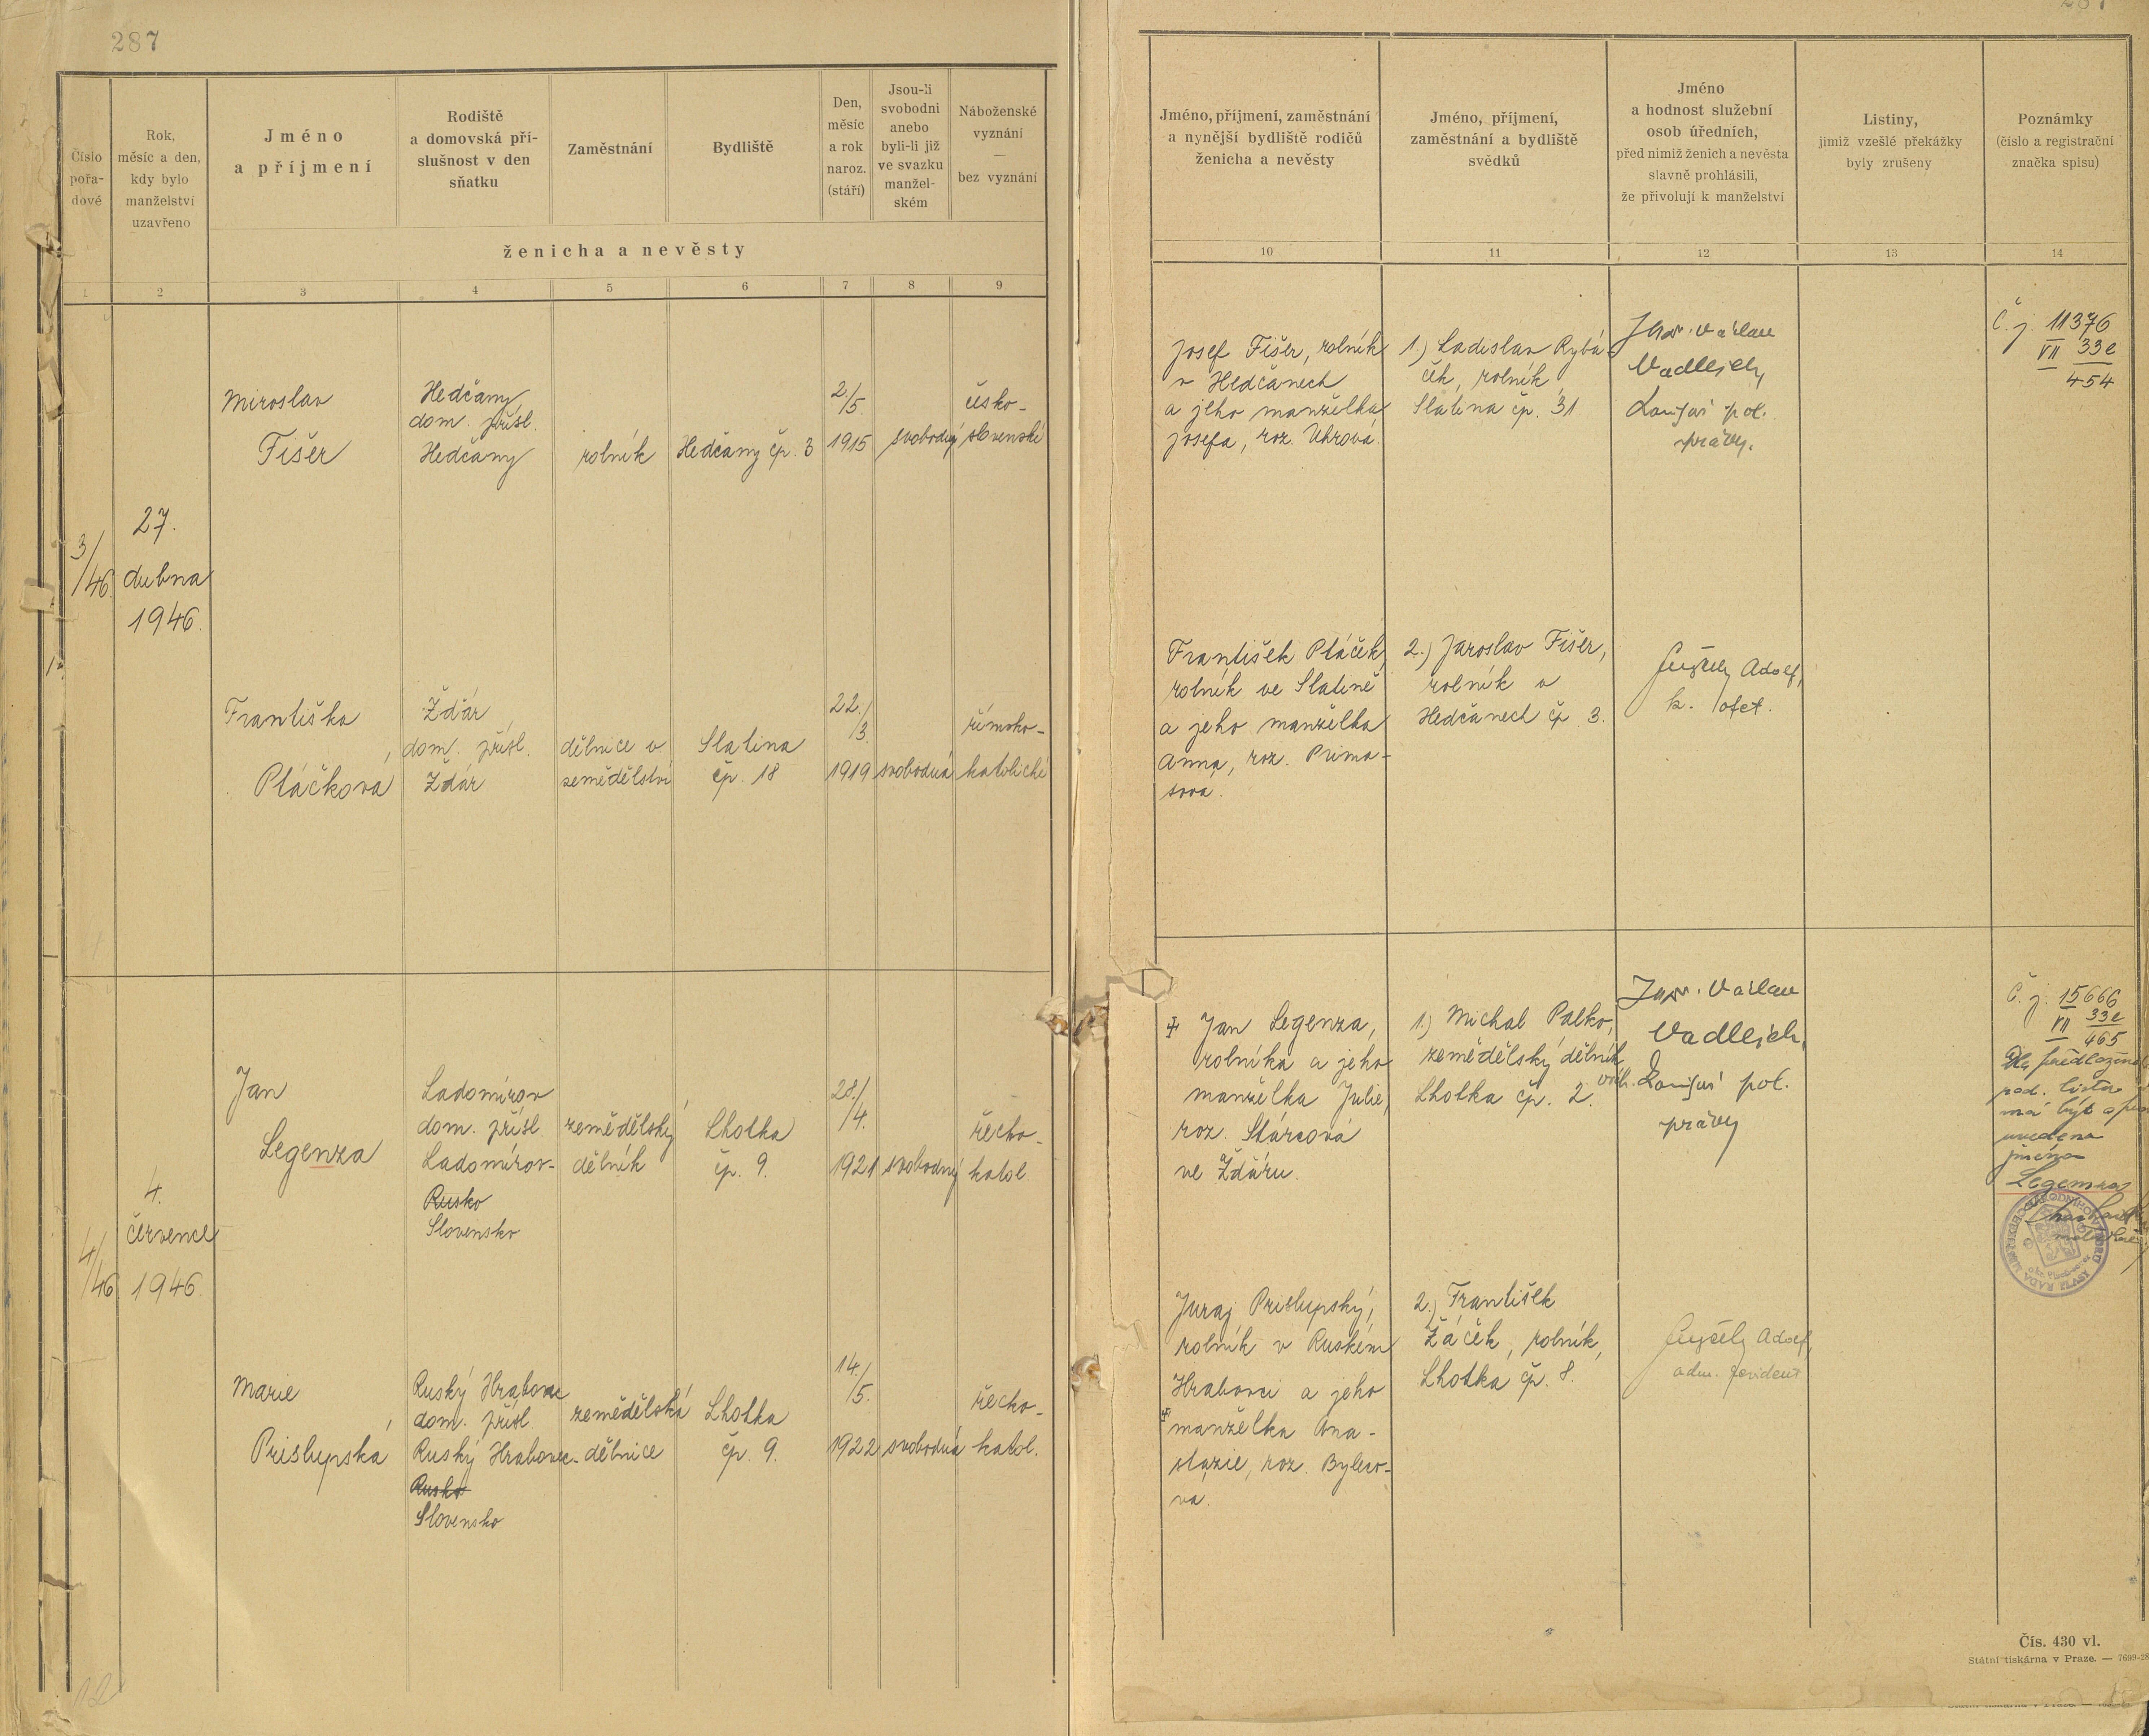 287
Číslo
pořa-
dové
Rok,
měsíc a den,
kdy bylo
manželství
uzavřeno
Jméno
a příjmení
Rodiště
a domovská pří-
slušnost v den
sňatku
Zaměstnání
Bydliště
Den,
měsíc
a rok
naroz.
(stáří)
Jsou-li
svobodni
anebo
byli-li již
ve svazku
manžel-
ském
Náboženské
vyznání
—
bez vyznání
ženicha a nevěsty
1 2 3 4 5 6 7 8 9
3/46
27.
dubna
1946.
Miroslav
Fišer
Hedčany
dom. přísl.
Hedčany
rolník
Hedčany čp. 3
2./5.
1915
svobodný
česko-
slovenské
Františka
Ptáčková
Žďár
dom. přísl.
Žďár
dělnice v
zemědělství
Slatina
čp. 18
22./3.
1919
svobodná
římsko-
katolické
4/46
4.
července
1946.
Jan
Legenza
Ladomírov
dom. přísl
Ladomírov-
Rusko
Slovensko
zemědělský
dělník
Lhotka
čp. 9.
28./4.
1921
svobodný
řecko-
katol
Marie
Prislupská
Ruský Hrabovec
dom. přísl.
Ruský Hrabovec-
Rusko
Slovensko
zemědělská
dělnice
Lhotka
čp. 9.
14./5.
1922
svobodná
řecko-
katol.
287
Jméno, příjmení, zaměstnání
a nynější bydliště rodičů
ženicha a nevěsty
Jméno, příjmení,
zaměstnání a bydliště
svědků
Jméno
a hodnost služební
osob úředních,
před nimiž ženich a nevěsta
slavně prohlásili,
že přivolují k manželství
Listiny,
jimiž vzešlé překážky
byly zrušeny
Poznámky
(číslo a registrační
značka spisu)
10 11 12 13 14
Josef Fišer, rolník
v Hedčanech
a jeho manželka
Josefa, roz. Uhrová.
1.) Ladislav Rybá-
ček, rolník
Slatina čp. 31
Václav
pol.
správy.
Č. j. 11376
VII 33e
454
František Ptáček,
rolník ve Slatině
a jeho manželka
Anna, roz. Prima-
sová.
2.) Jaroslav Fišer,
rolník v
Hedčanech čp 3.
Adolf,
Jan Legenza,
rolníka a jeho
manželka Julie,
roz. Stárcová
ve Žďáru.
1.) Michal Palko,
zemědělský dělník,
Lhotka čp. 2.
Václav
pol.
správy
Č. j. 15666
VII 33e
465
Dle
rod. listu
má být
uvedeno
jméno
Legemza
Juraj Prislupský,
rolník v Ruském
Hrabovci a jeho
manželka Ana-
stazie, roz. Byleco-
vá.
2.) František
Žáček, rolník,
Lhotka čp. 8.
Adolf,
adm.
Čís. 430 vl.
Státní tiskárna v Praze. — 7699-28